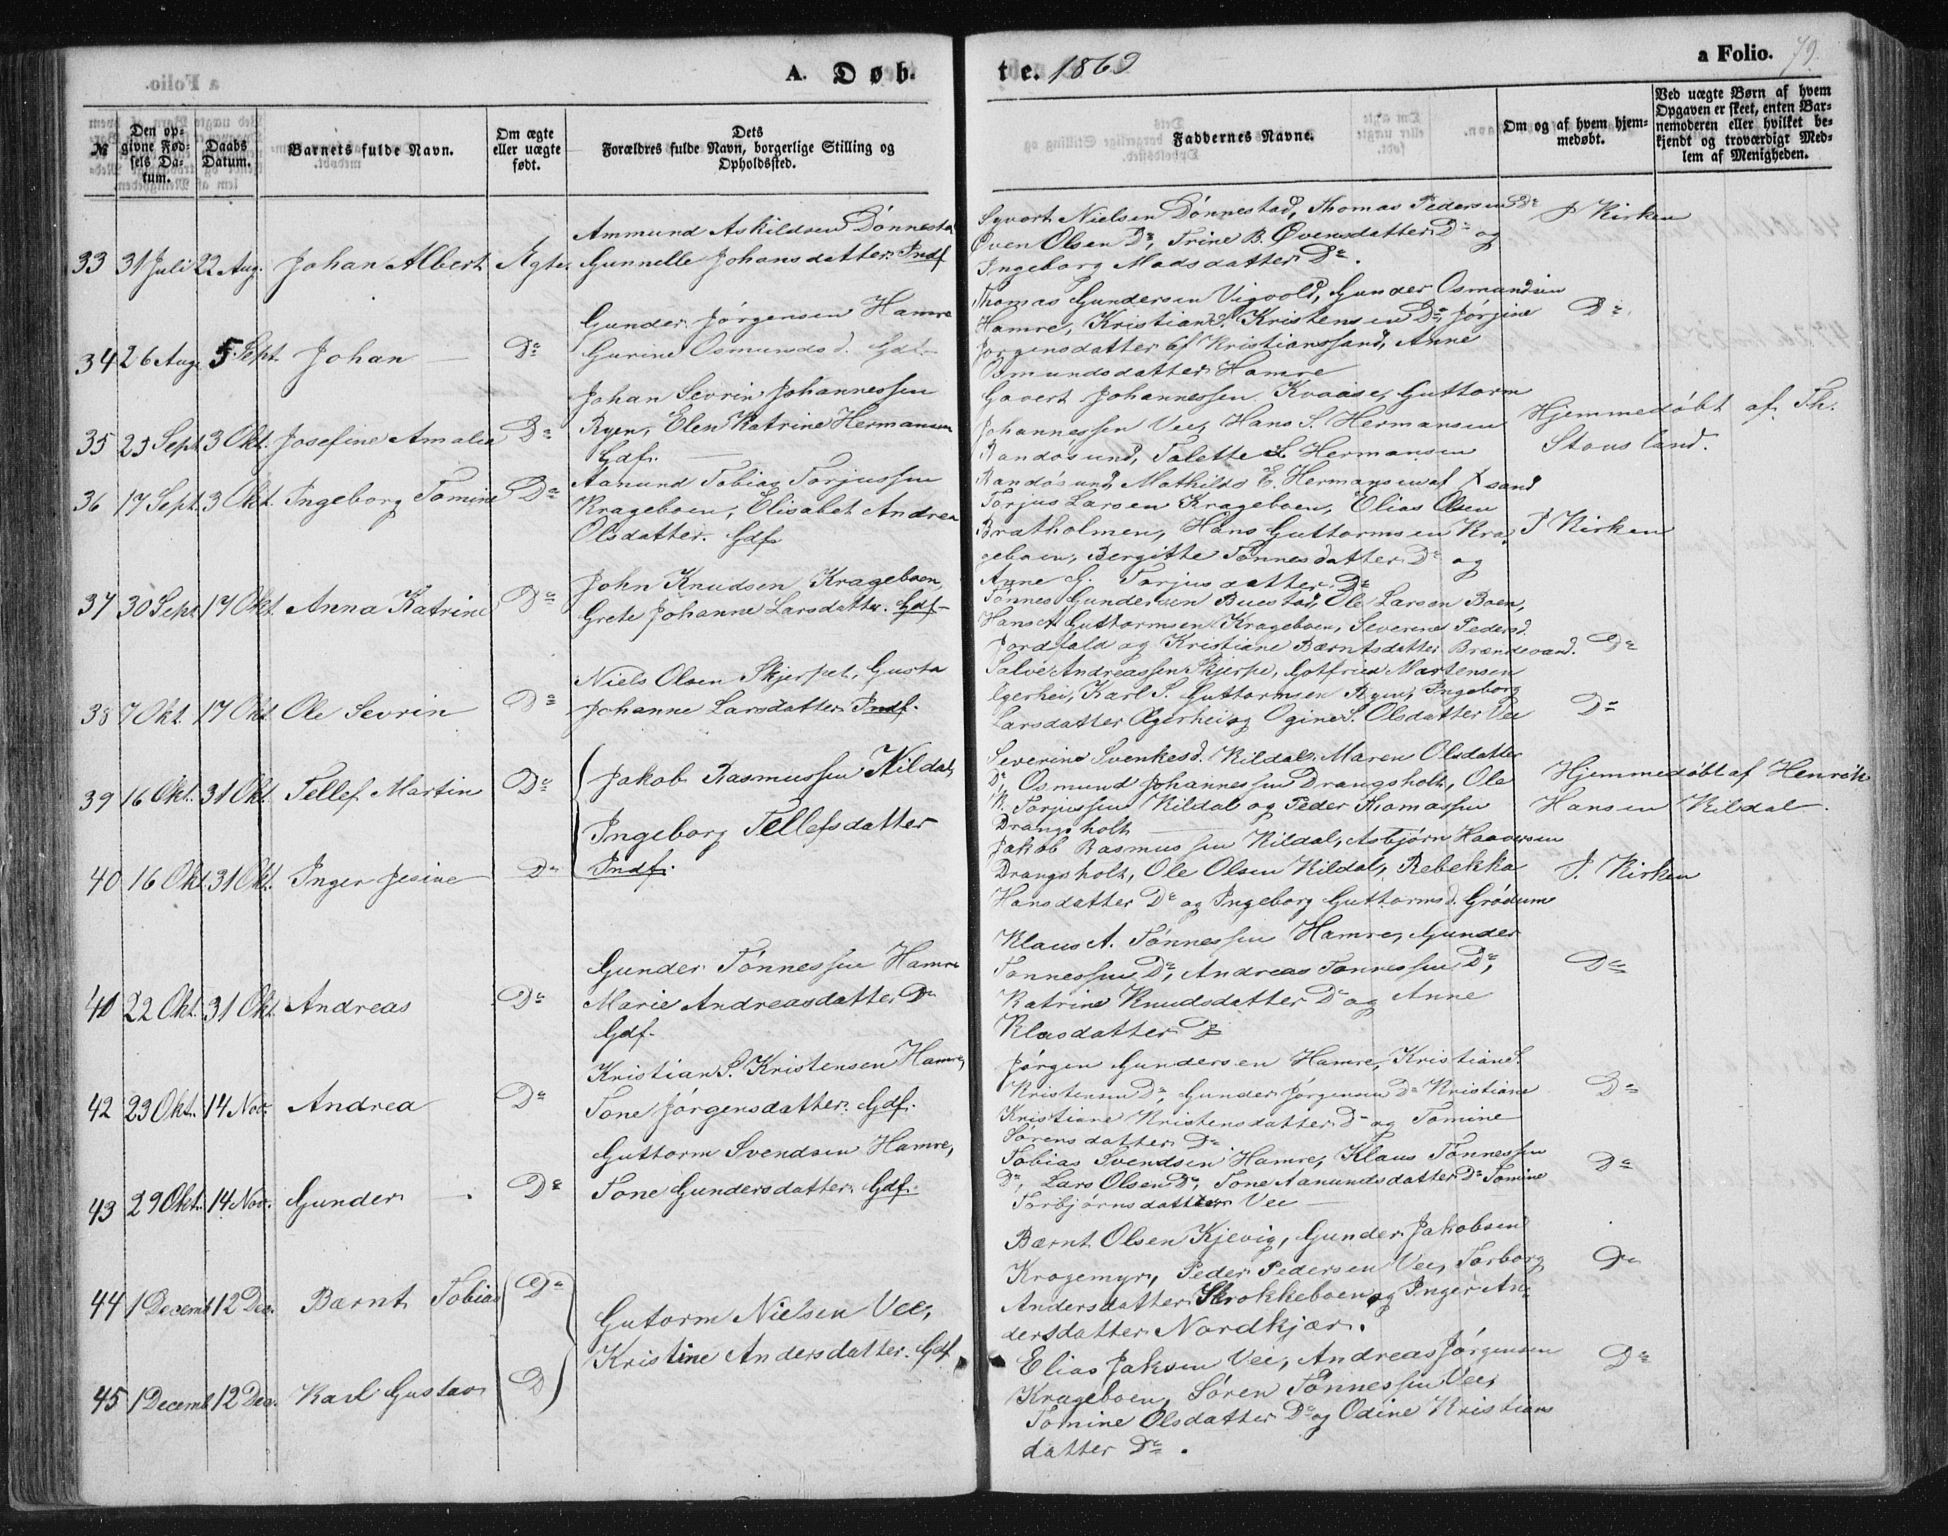 A. Døb-
te. 1869
a Folio. 79.
№
Den opgivne Fødsels Datum.
Daabs Datum.
Barnets fulde Navn.
Om ægte eller uægte født.
Dets Forældres fulde Navn, borgerlige Stilling og Opholdssted.
Faddernes Navne.
Om og af hvem hjemmedøbt.
Ved uægte Børn af hvem Opgaven er skeet, enten Barnemoderen eller hvilket bekjendt og troværdigt Medlem af Menigheden.
33 31 Juli 22 Aug. Johan Albert Ægte
Ammund Askildsen Dønnesta
Gunnelle Johansdatter Indf
Syvert Nielsen Dønnestad, Thomas Pedersen Do
Øven Olsen Do, Trine B. Øvensdatter Do og
Ingeborg Madsdatter Do.
I Kirken
34 26 Aug 5 Sept. Johan Do
Gunder Jørgensen Hamre
Gurine Osmundsd. Gdf.
Thomas Gundersen Vigvold, Gunder Osmundsen
Hamre, Kristian S. Kristensen Do, Jørgine
Jørgensdatter af Kristianssand, Anne
Osmundsdatter Hamre
Do
35 25 Sept. 3 Okt. Josefine Amalia Do
Johan Sevrin Johannessen
Ryen, Elen Katrine Hermansen
Gdf.
Govert Johannessen Kvaase, Guttorm
Johannessen Vee, Hans S. Hermansen
Randøsund, Talette S. Hermansen
Randøsund, Mathilde E. Hermansen af Xsand
Hjemmedøbt af Th.
Stousland.
36 17 Sept. 3 Okt. Ingeborg Tomine Do
Aanund Tobias Torjussen
Krageboen, Elisabet Andrea
Olsdatter. Gdf
Torjus Larsen Krageboen, Elias Olsen
Bratholmen, Hans Guttormsen Kra-
geboen, Bergitte Tønnesdatter Do og
Anne G. Torjusdatter Do
I Kirken
37 30 Sept. 17 Okt. Anna Katrine Do
John Knudsen Krageboen,
Grete Johanne Larsdatter. Gdf
Tønnes Gundersen Buestad, Ole Larsen Boen,
Hans A Guttormsen Krageboen, Severine Pedersd.
Jordfald og Kristiane Bærntsdatter Brændevand.
Do
38 7 Okt. 17 Okt. Ole Sevrin Do
Niels Olsen Skjerpet, Gusta
Johanne Larsdatter Indf.
Salve Andreassen Skjerpe, Gotfried Martensen
Egerhei, Karl S. Guttormsen Ryen, Ingeborg
Larsdatter Ægerhei og Ogine S. Olsdatter Vee
Do
39 16 Okt. 31 Okt. Tellef Martin Do
Jakob Rasmussen Kildal,
Ingeborg Tellefsdatter
Indf.
Severine Svenkesd. Kildal, Maren Olsdatter
Do, Osmund Johannessen Drangsholt, Ole
K. Torjussen Kildal og Peder Thomassen
Drangsholt
Hjemmedøbt af Henrik
Hansen Kildal.
40 16 Okt. 31 Okt. Inger Jesine Do
Jakob Rasmussen Kildal, Asbjørn Haaversen
Drangsholt, Ole Olsen Kildal, Rebekka
Hansdatter Do og Ingeborg Guttormsd. Grødum
I Kirken
40 22 Okt. 31 Okt. Andreas Do
Gunder Tønnessen Hamre
Marie Andreasdatter Do
Gdf.
Klaus A. Tønnessen Hamre, Gunder
Tønnessen Do, Andreas Tønnessen Do,
Katrine Knudsdatter Do og Anne
Klasdatter Do
Do
42 23 Okt. 14 Nov. Andrea Do
Kristian S. Kristensen Hamre,
Tone Jørgensdatter Gdf.
Jørgen Gundersen Hamre, Kristian S.
Kristensen Do, Gunder Jørgensen Do Kristiane
Kristiane Kristensdatter Do og Tomine
Sørensdatter Do
Do
43 29 Okt. 14 Nov. Gunder Do
Guttorm Svendsen Hamre,
Tone Gundersdatter Gdf.
Tobias Svendsen Hamre, Klaus Tønnessen
Do, Lars Olsen Do, Tone Aanundsdatter Do Tomine
Torbjørnsdatter Vee
Do
44 1 Decemb 12 Dec. Bærnt Tobias Do
Gutorm Nielsen Vee,
Kristine Andersdatter Gdf
Bærnt Olsen Kjevig, Gunder Jakobsen
Kragemyr, Peder Pedersen Vee, Torborg
Andersdatter Skrokkeboen og Inger An-
dersdatter Nordkjær.
Do
45 1 Decemb 12 Dec. Karl Gustav D
Elias Jaksen Vee, Andreas Jørgensen
Krageboen, Søren Tønnessen Vee,
Tomine Olsdatter Do og Odine Kristians
datter Do.
Do